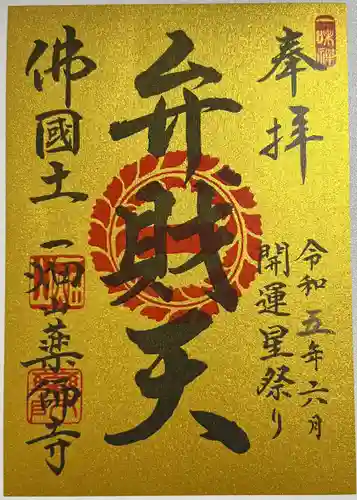 奉拝
令和五年六月
開運星祭り
弁財天
佛國土 一畑山薬師寺